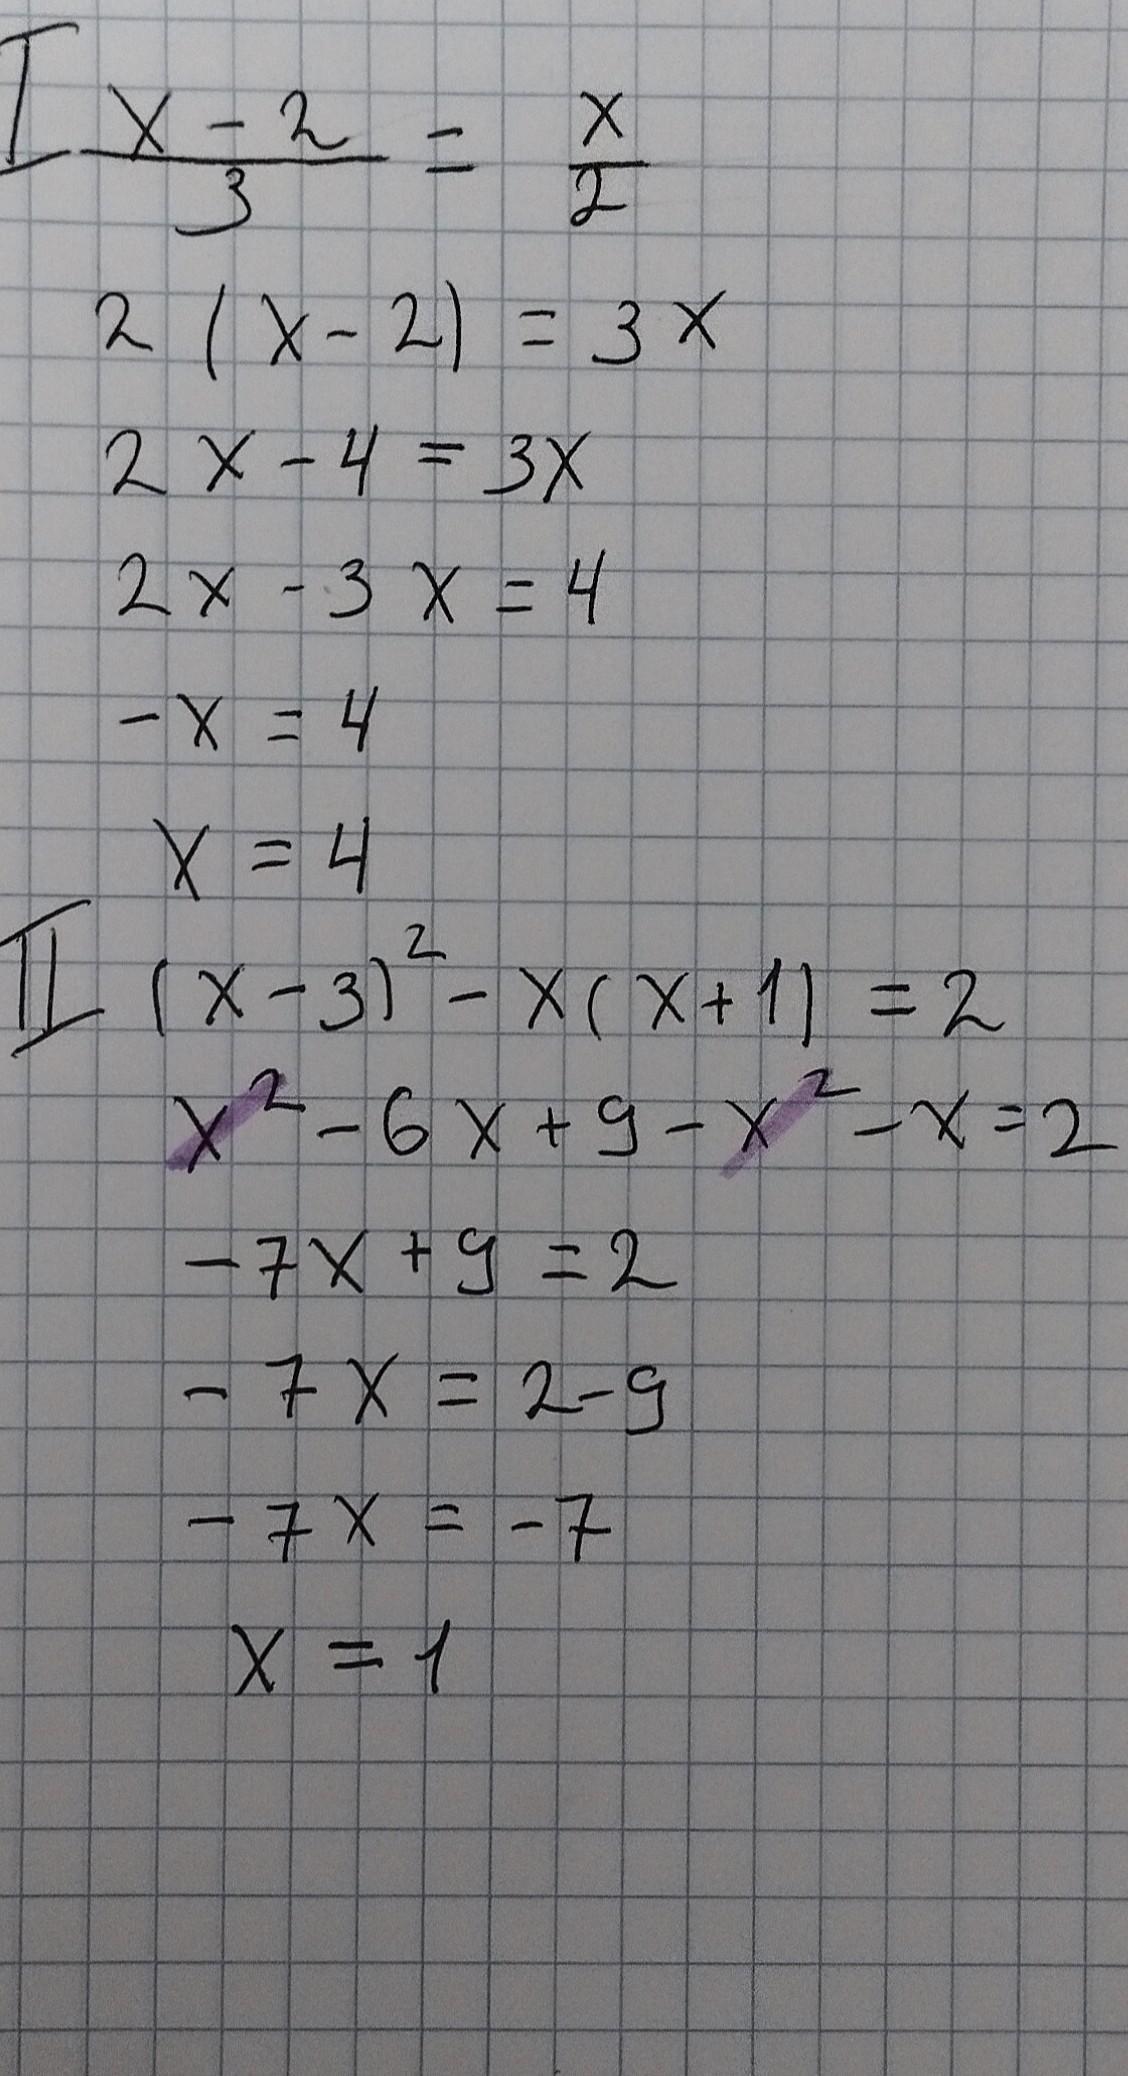 I (x - 2)/3 = x/2
2 (x - 2) = 3x
2x - 4 = 3x
2x - 3x = 4
-x = 4
x = 4
II (x - 3)² - x(x + 1) = 2
x² - 6x + 9 - x² - x = 2
-7x + 9 = 2
-7x = 2 - 9
-7x = -7
x = 1